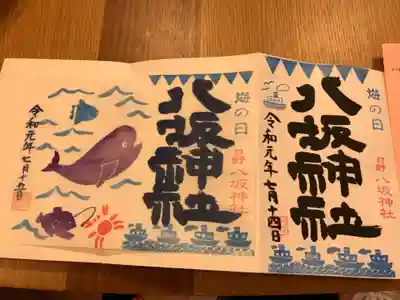 海の日
八坂神社
日野 八坂神社
令和元年七月十四日
海の日
八坂神社
日野 八坂神社
令和元年七月十五日